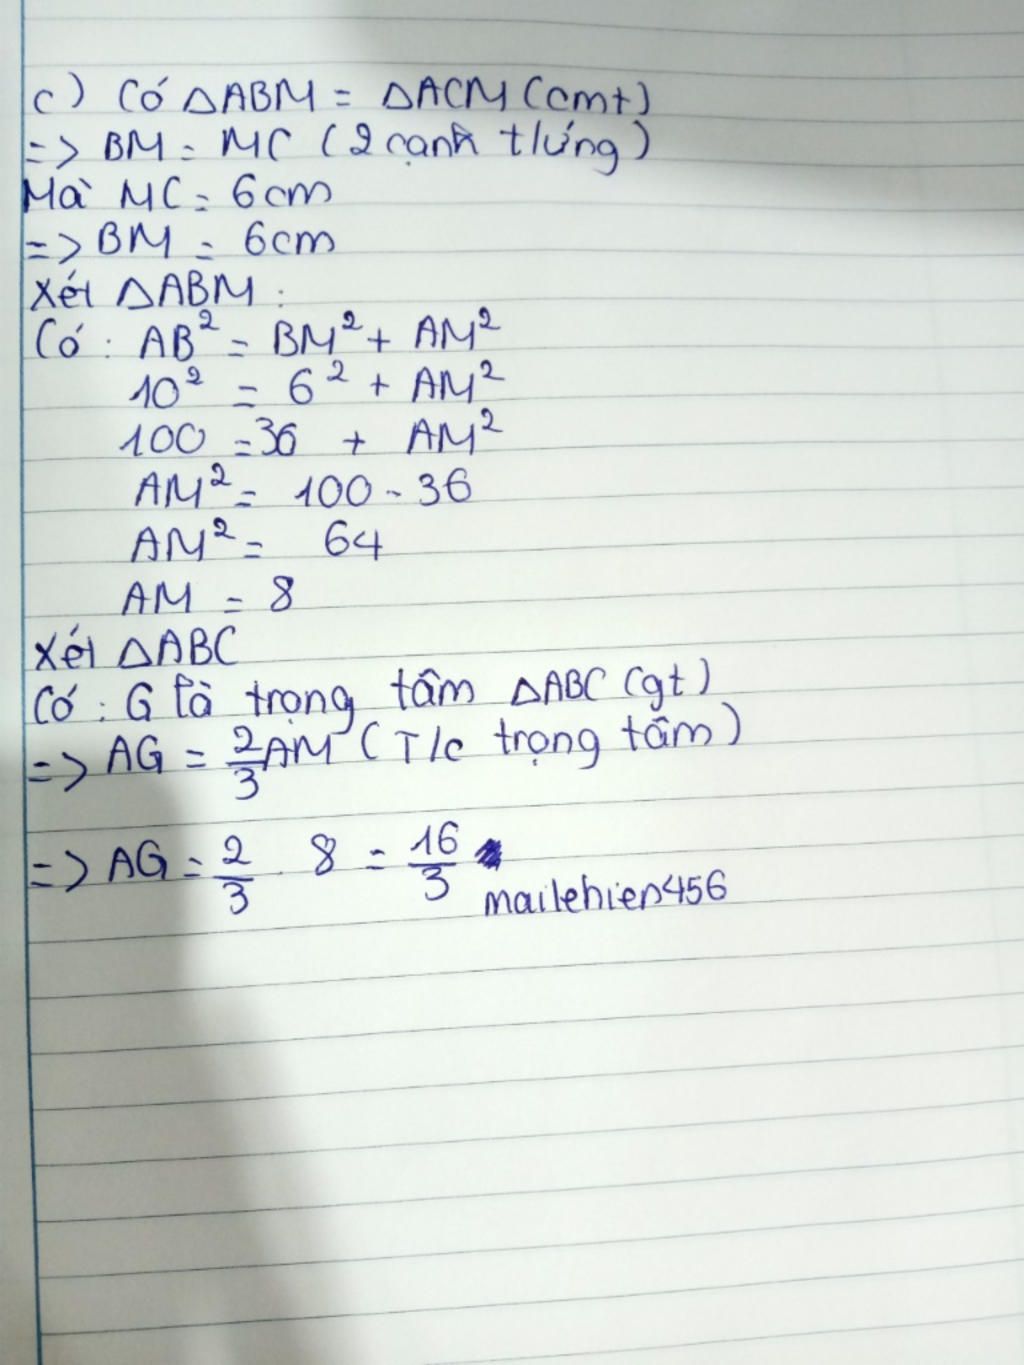 c) Có △ABM = △ACM (cmt)
=> BM = MC (2 cạnh t/ứng)
Mà MC = 6cm
=> BM = 6cm
Xét △ABM :
Có : AB² = BM² + AM²
10² = 6² + AM²
100 = 36 + AM²
AM² = 100 - 36
AM² = 64
AM = 8
Xét △ABC
Có : G là trọng tâm △ABC (gt)
=> AG = 2/3 AM (T/c trọng tâm)
=> AG = 2/3 . 8 = 16/3
mailehien456